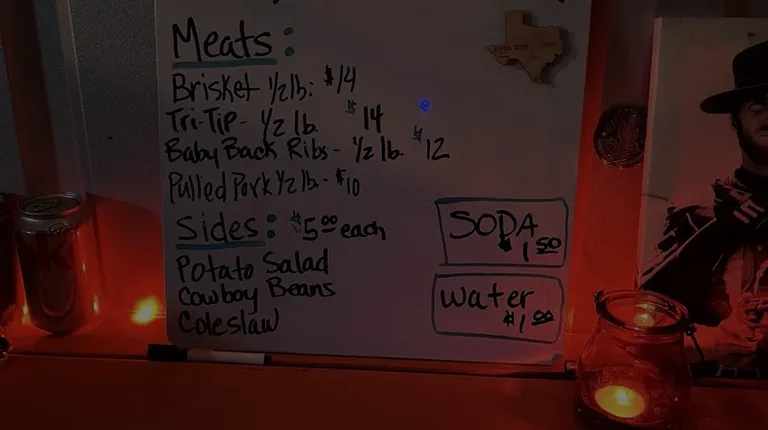 Meats:
Brisket 1/2 lb: $14
Tri-Tip - 1/2 lb. $14
Baby Back Ribs - 1/2 lb. $12
Pulled Pork 1/2 lb. - $10
Sides: $5.00 each
Potato Salad
Cowboy Beans
Coleslaw
SODA
$1.50
Water
$1.00